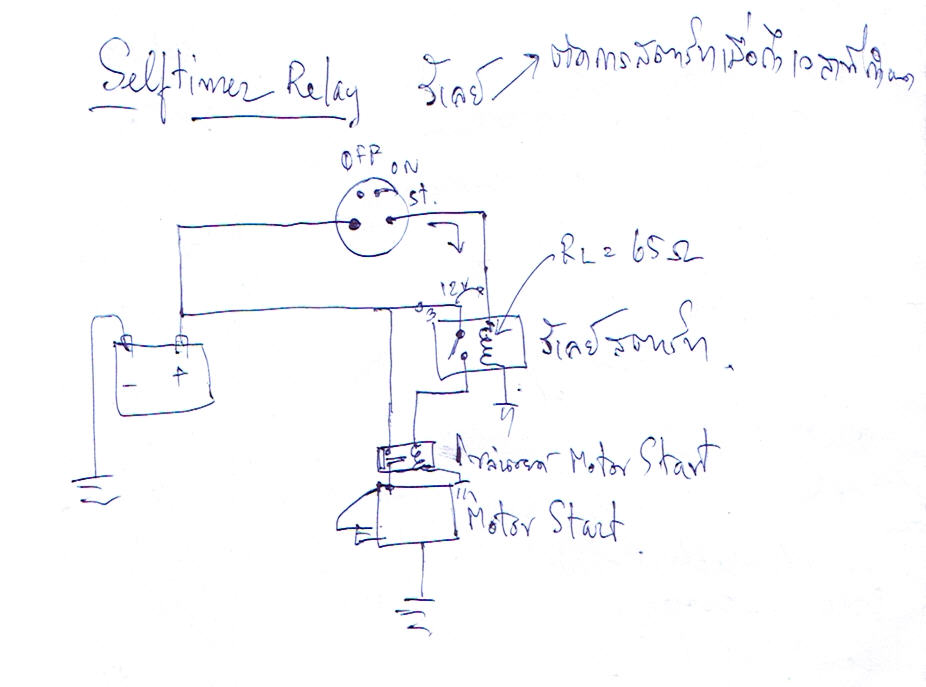 Selftimer Relay รีเลย์ ตัดการสตาร์ทเมื่อถึงเวลาที่กำหนด
OFF ON
st.
RL = 65 Ω
12V
3
รีเลย์สตาร์ท.
- +
โซลินอยด์ Motor Start
Motor Start.